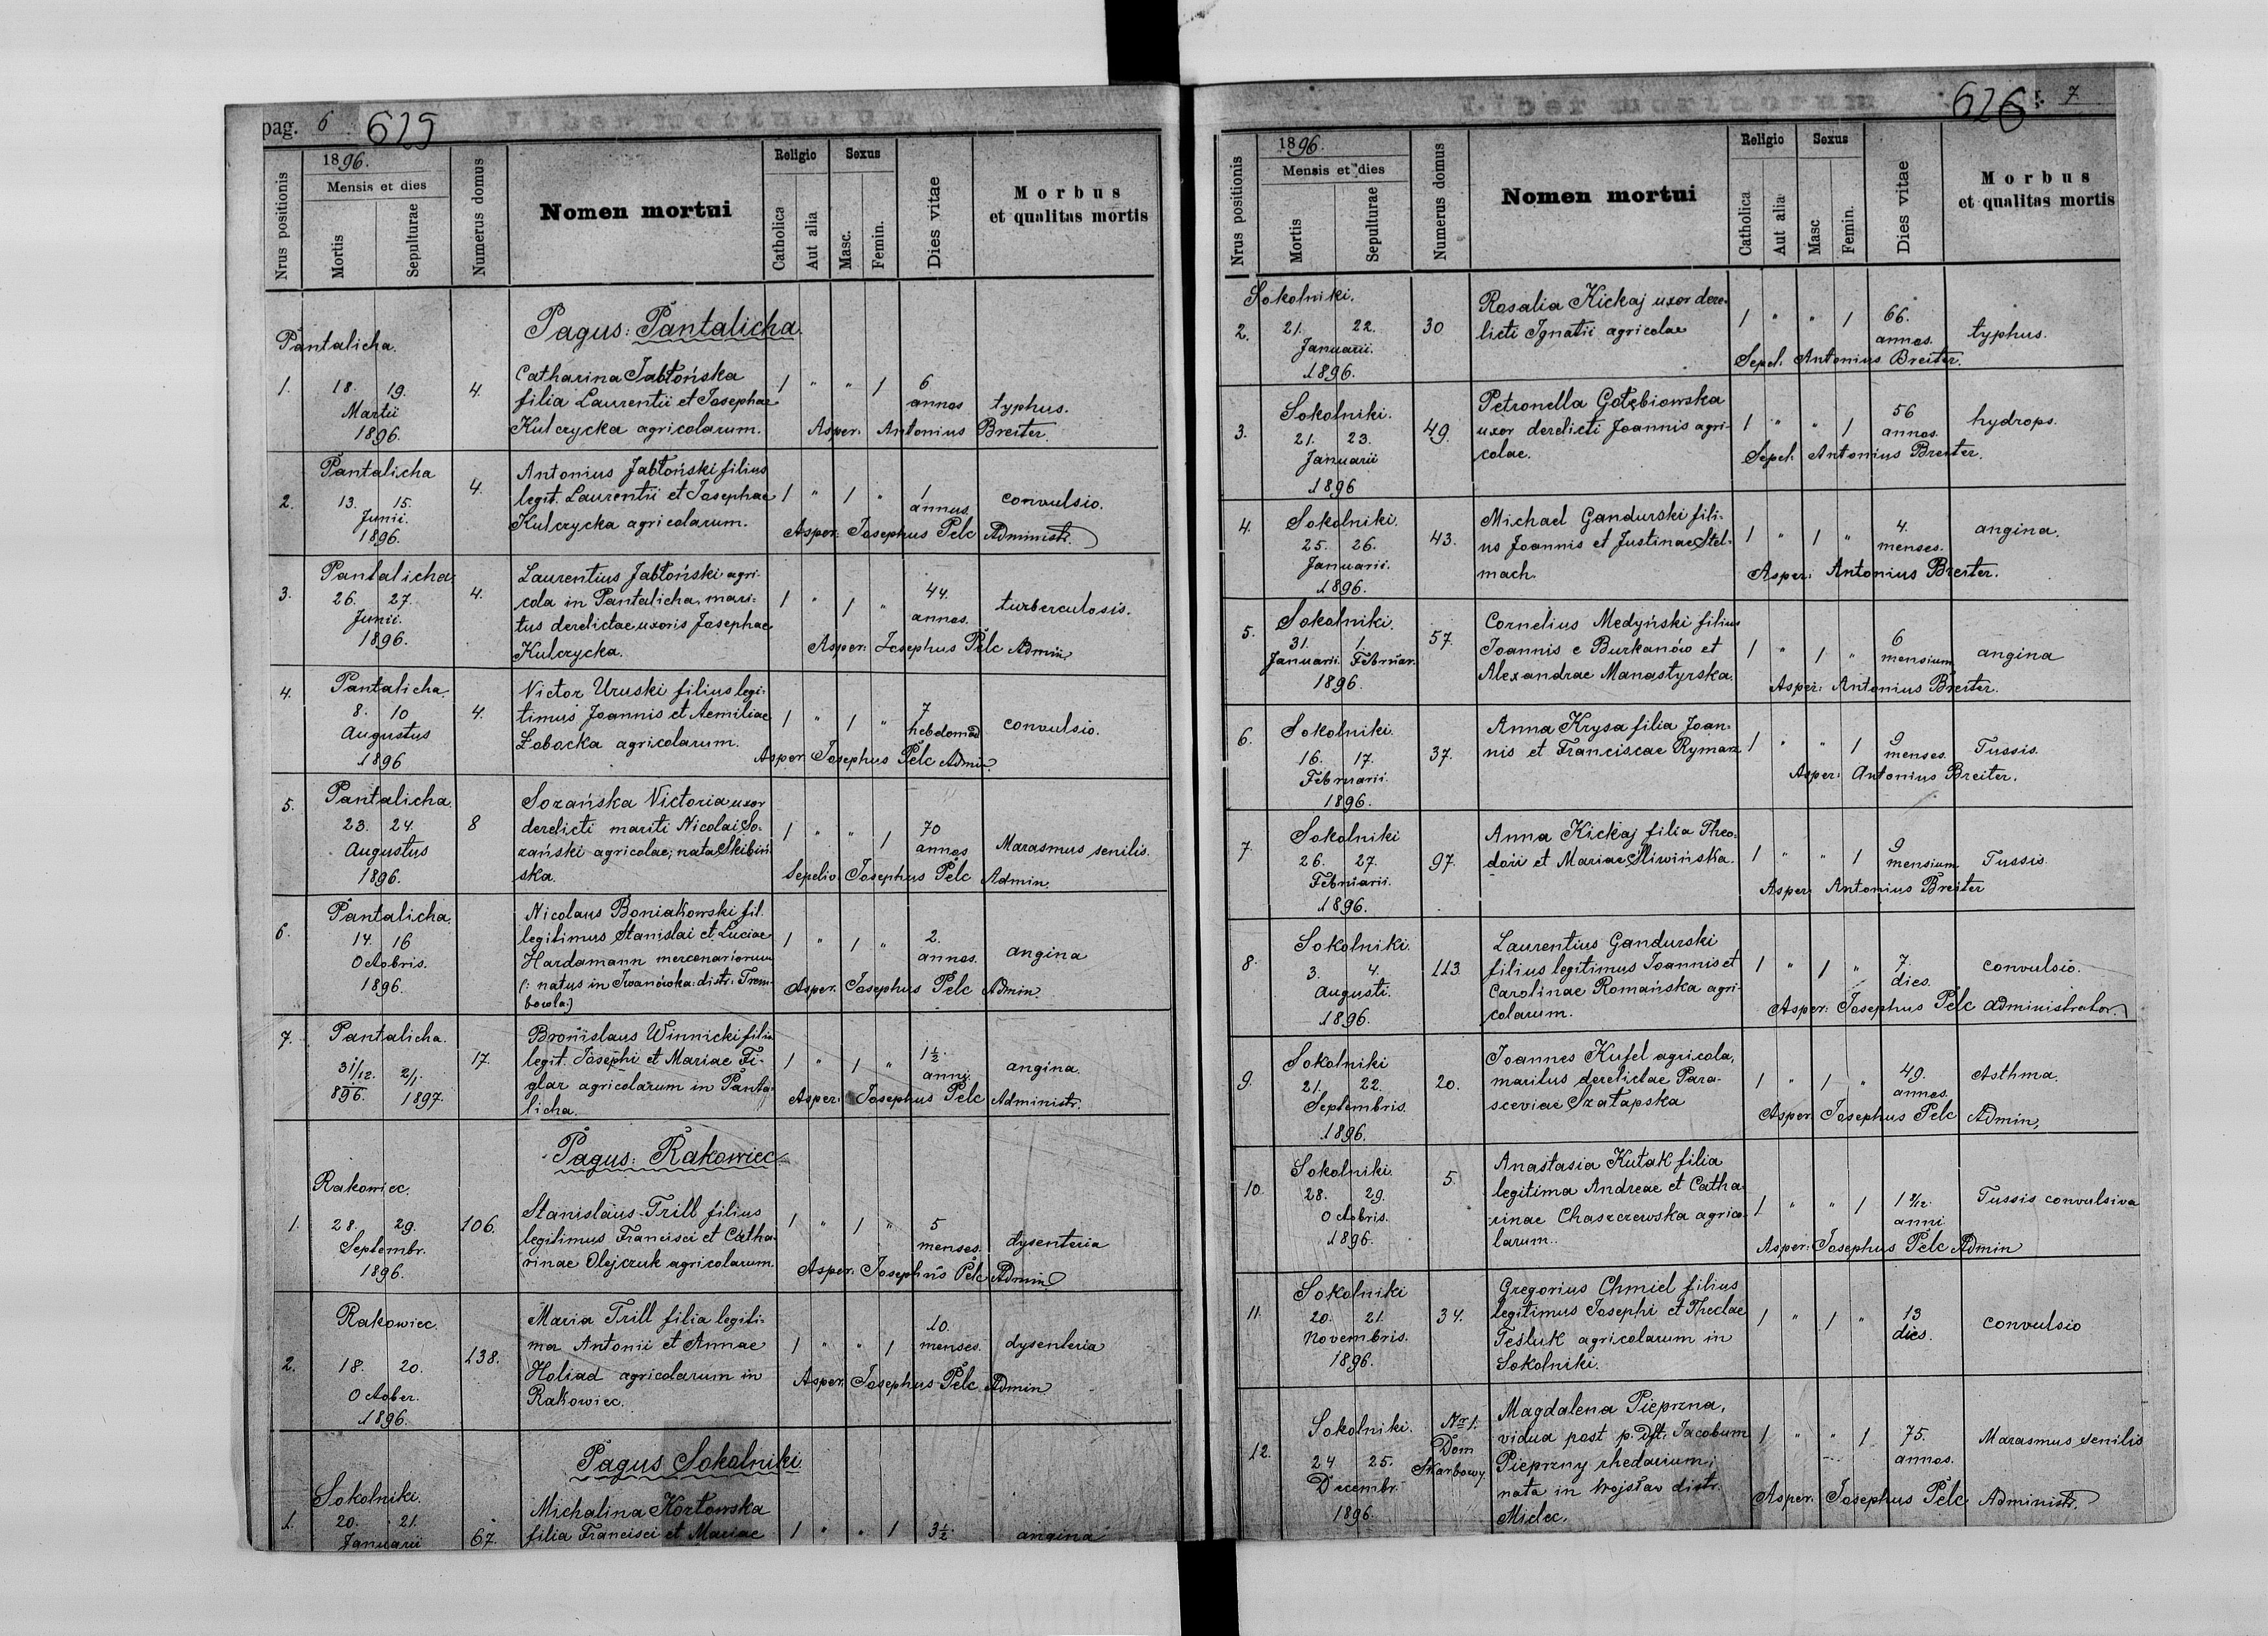 pag. 6 625
Liber mortuorum
Nrus positionis
1896.
Mensis et dies
Mortis
Sepulturae
Numerus domus
Nomen mortui
Religio
Catholica
Aut alia
Sexus
Masc.
Femin.
Dies vitae
Morbus
et qualitas mortis
Pagus: Pantalicha.
Pantalicha.
1. 18. 19. 4. Catharina Jabłońska 1 " " 1 6
Martii filia Laurentii et Josephae annos typhus.
1896. Kulczycka agricolarum. Asper: Antonius Breiter.
Pantalicha Antonius Jabłoński filius
2. 13. 15. 4. legit. Laurentii et Josephae 1 " 1 " 1 convulsio.
Junii. Kulczycka agricolarum. annus.
1896. Asper: Josephus Pelc Administr.
Pantalicha Laurentius Jabłoński agri-
3. 26. 27. 4. cola in Pantalicha, mari- 1 " 1 " 44. turberculosis.
Junii. tus derelictae uxoris Josephae annos.
1896. Kulczycka. Asper: Josephus Pelc Admin.
4. Pantalicha. Victor Uruski filius legi-
8. 10 4. timus Joannis et Aemiliae 1 " 1 " 7 convulsio.
Augustus Łobocka agricolarum. hebdomad
1896 Asper. Josephus Pelc Admin.
5. Pantalicha. Sozańska Victoria uxor
23. 24. 8 derelicti mariti Nicolai So- 1 " " 1 70
Augustus zański agricolae; nata Skibiń- annos Marasmus senilis.
1896. ska. Sepeliv. Josephus Pelc Admin.
6. Pantalicha. Nicolaus Boniakowski fil.
14. 16 legitimus Stanislai et Luciae 1 " 1 " 2. angina
Octobris. Hardamann mercenariorum annos.
1896. (: natus in Iwanówka: distr: Trem- Asper. Josephus Pelc Admin.
bowla:)
7. Pantalicha. Bronislaus Winnicki filius
31/12. 2/1. 17. legit. Josephi et Mariae Fi- 1 " 1 " 1½ angina.
896. 1897. glar agricolarum in Panta- anni.
licha. Asper: Josephus Pelc Administr.
Pagus: Rakowiec.
Rakowiec.
1. 28. 29. 106. Stanislaus Trill filius 1 " 1 " 5
Septembr. legitimus Francisci et Catha- menses. dysenteria
1896. rinae Olejczuk agricolarum. Asper. Josephus Pelc Admin
Rakowiec. Maria Trill filia legiti-
2. 18. 20. 138. ma Antonii et Annae 1 " " 1 10. dysenteria
October. Holiad agricolarum in menses.
1896. Rakowiec. Asper. Josephus Pelc Admin
Pagus Sokolniki.
Sokolniki.
1. 20. 21. Michalina Kozłowska
Januarii 67. filia Francisci et Mariae 1 " " 1 3½ angina
626 7
Liber mortuorum
Nrus positionis
1896.
Mensis et dies
Mortis
Sepulturae
Numerus domus
Nomen mortui
Religio
Catholica
Aut alia
Sexus
Masc
Femin.
Dies vitae
Morbus
et qualitas mortis
Sokolniki. Rosalia Kickaj uxor dere-
2. 21. 22. 30 licti Ignatii agricolae 1 " " 1 66. typhus.
Januarii. annos.
1896. Sepel. Antonius Breiter.
Sokolniki. Petronella Gołębiowska
3. 21. 23. 49. uxor derelicti Joannis agri- 1 " " 1 56 hydrops.
Januarii colae. annos.
1896 Sepel. Antonius Breiter.
4. Sokolniki. Michael Gandurski fili-
25. 26. 43. us Joannis et Justinae Stel- 1 " 1 " 4. angina.
Januarii. mach. menses.
1896. Asper: Antonius Breiter.
5. Sokolniki. Cornelius Medyński filius
31. 1. 57. Joannis e Burkanów et 1 " 1 " 6 angina
Januarii. Februar. Alexandrae Manastyrska. mensium
1896. Asper: Antonius Breiter.
6. Sokolniki. Anna Krysa filia Joan-
16. 17. 37. nis et Franciscae Rymarz 1 " " 1 9 Tussis.
Februarii. menses.
1896. Asper: Antonius Breiter.
7. Sokolniki Anna Kickaj filia Theo-
26. 27. 97. dori et Mariae Śliwińska. 1 " " 1 9 Tussis.
Februarii. mensium
1896. Asper: Antonius Breiter
8. Sokolniki. Laurentius Gandurski
3. 4. 113. filius legitimus Joannis et 1 " 1 " 7. convulsio.
Augusti. Carolinae Romańska agri- dies.
1896. colarum. Asper: Josephus Pelc administrator.
Sokolniki Joannes Kufel agricola,
9. 21. 22. 20. maritus derelictae Para- 1 " 1 " 49. Asthma.
Septembris. sceviae Szatapska annos.
1896. Asper. Josephus Pelc Admin.
10. Sokolniki 5. Anastasia Kutak filia
28. 29. legitima Andreae et Catha- 1 " " 1 1 9/12. Tussis convulsiva
Octobris. rinae Chaszczewska agrico- anni.
1896. larum. Asper: Josephus Pelc Admin
11. Sokolniki Gregorius Chmiel filius
20. 21. 34. legitimus Josephi et Theclae 1 " 1 " 13 convulsio
Novembris. Tesluk agricolarum in dies.
1896. Sokolniki.
12. Sokolniki. Nro 1. Magdalena Pieprzna,
24 25. Dom vidua post p. Dft. Jacobum 1 " " 1 75. Marasmus senilis
Decembr. Skarbowy Pieprzny rhedarium; annos.
1896. nata in Wojsław distr. Asper. Josephus Pelc Administr.
Mielec.